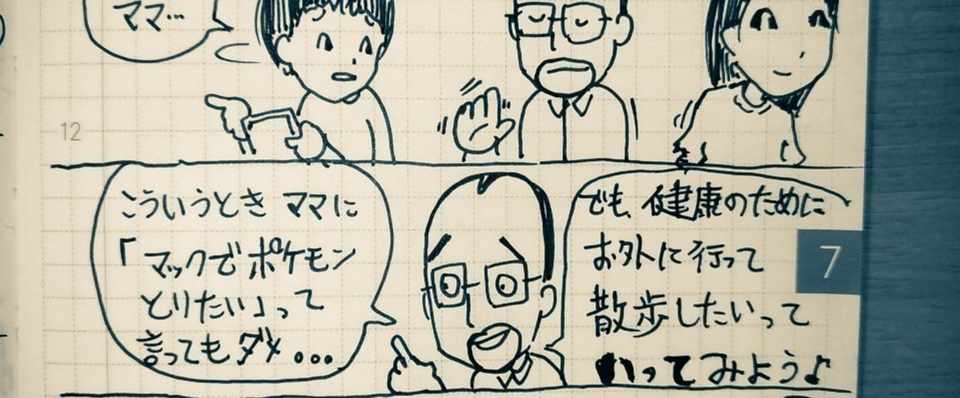 ママ…
12
こういうとき ママに
「マックでポケモン
とりたい」って
言ってもダメ...
でも、健康のために
お外に行って
散歩したいって
いってみよう♪
7